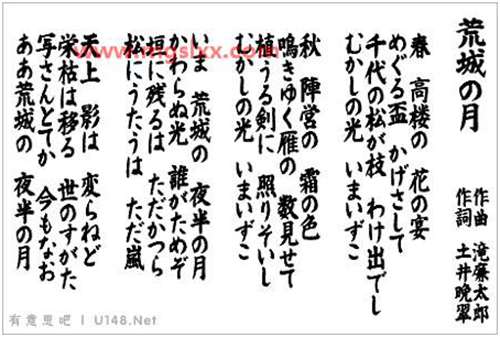 荒城の月
作曲 滝廉太郎
作詞 土井晩翠
春 高楼の 花の宴
めぐる盃 かげさして
千代の松が枝 わけ出でし
むかしの光 いまいずこ
秋 陣営の 霜の色
鳴きゆく雁の 数見せて
植うる剣に 照りそいし
むかしの光 いまいずこ
いま 荒城の 夜半の月
かわらぬ光 誰がためぞ
垣に残るは ただかつら
松にうたうは ただ嵐
天上 影は 変らねど
栄枯は移る 世のすがた
写さんとてか 今もなお
ああ荒城の 夜半の月
www.mgslxx.com
有意思吧 | U148.Net